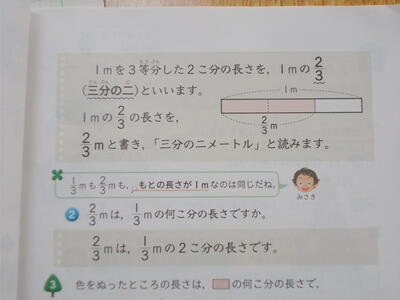 1mを3等分した2こ分の長さを，1mの2/3
(三分の二)といいます。
1m
1mの2/3の長さを，
2/3 m
2/3 mと書き，「三分の二メートル」と読みます。
1/3 mも2/3 mも，もとの長さが1mなのは同じだね。
みさき
2 2/3 mは，1/3 mの何こ分の長さですか。
2/3 mは，1/3 mの2こ分の長さです。
3 色をぬったところの長さは，の何こ分の長さで，